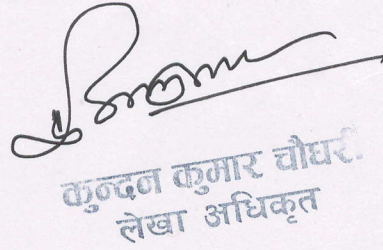 कुन्दन कुमार चौधरी
लेखा अधिकृत